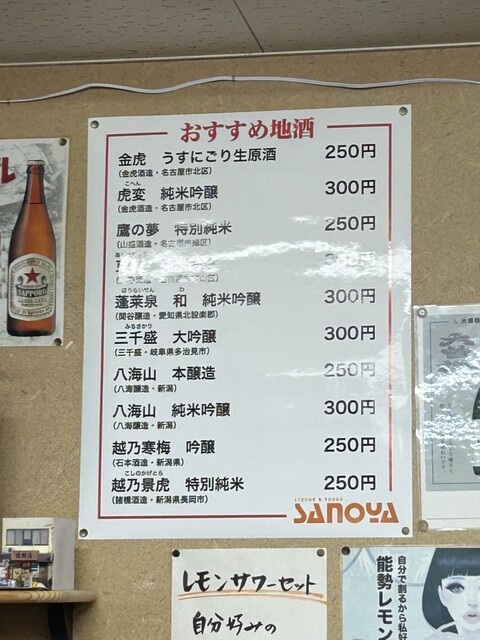 おすすめ地酒
金虎 うすにごり生原酒 250円
(金虎酒造・名古屋市北区)
こへん
虎変 純米吟醸 300円
(金虎酒造・名古屋市北区)
鷹の夢 特別純米 250円
(山盛酒造・名古屋市緑区)
300円
ほうらいせん わ
蓬莱泉 和 純米吟醸 300円
(関谷醸造・愛知県北設楽郡)
みちさかり
三千盛 大吟醸 300円
(三千盛・岐阜県多治見市)
八海山 本醸造 250円
(八海醸造・新潟)
八海山 純米吟醸 300円
(八海醸造・新潟)
越乃寒梅 吟醸 250円
(石本酒造・新潟県)
こしのかげとら
越乃景虎 特別純米 250円
(諸橋酒造・新潟県長岡市)
LIQUOR & FOODS
SANOYA
SAPPORO
レモンサワーセット
自分好みの
自分で割るから私
能勢レモン